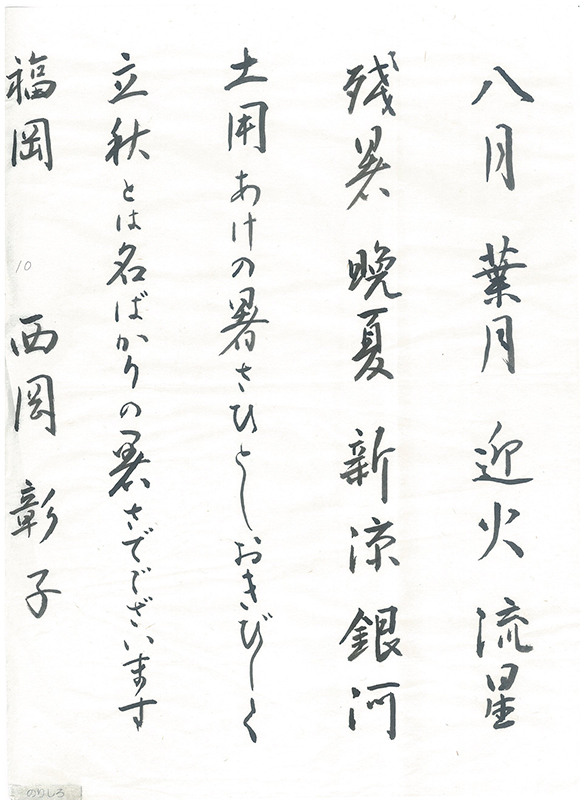 八月 葉月 迎火 流星
残暑 晩夏 新涼 銀河
土用あけの暑さひとしおきびしく
立秋とは名ばかりの暑さでございます
福岡 10 西岡 彰子
のりしろ